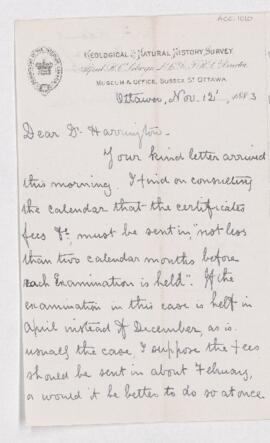 ACC. 1010
GEOLOGICAL & NATURAL HISTORY SURVEY.
Alfred R. C. Selwyn, L.L.D., F.R.S., Director.
MUSEUM & OFFICE, SUSSEX ST OTTAWA.
Ottawa, Nov. 12' 1883
Dear Dr Harrington -
Your kind letter arrived
this morning. I find on consulting
the calendar that the certificates
fees &c, must be sent in, "not less
than two calendar months before
each Examination is held". If the
examination in this case is held in
April instead of December, as is
usually the case, I suppose the fees
should be sent in about February,
or would it be better to do so at once.